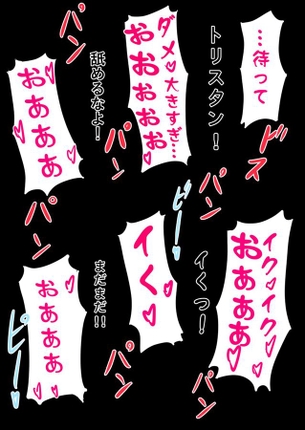 …待って
ドス
トリスタン！
ダメ♡大きすぎ…
おおおおお♡
パン
舐めるなよ！
パン
おああああ♡
パン
イク♡イク♡
おああああ♡
パン
イくっ！
パン
ビー♡
イく♡
パン
まだまだ！！
おああああ♡
ビー♡